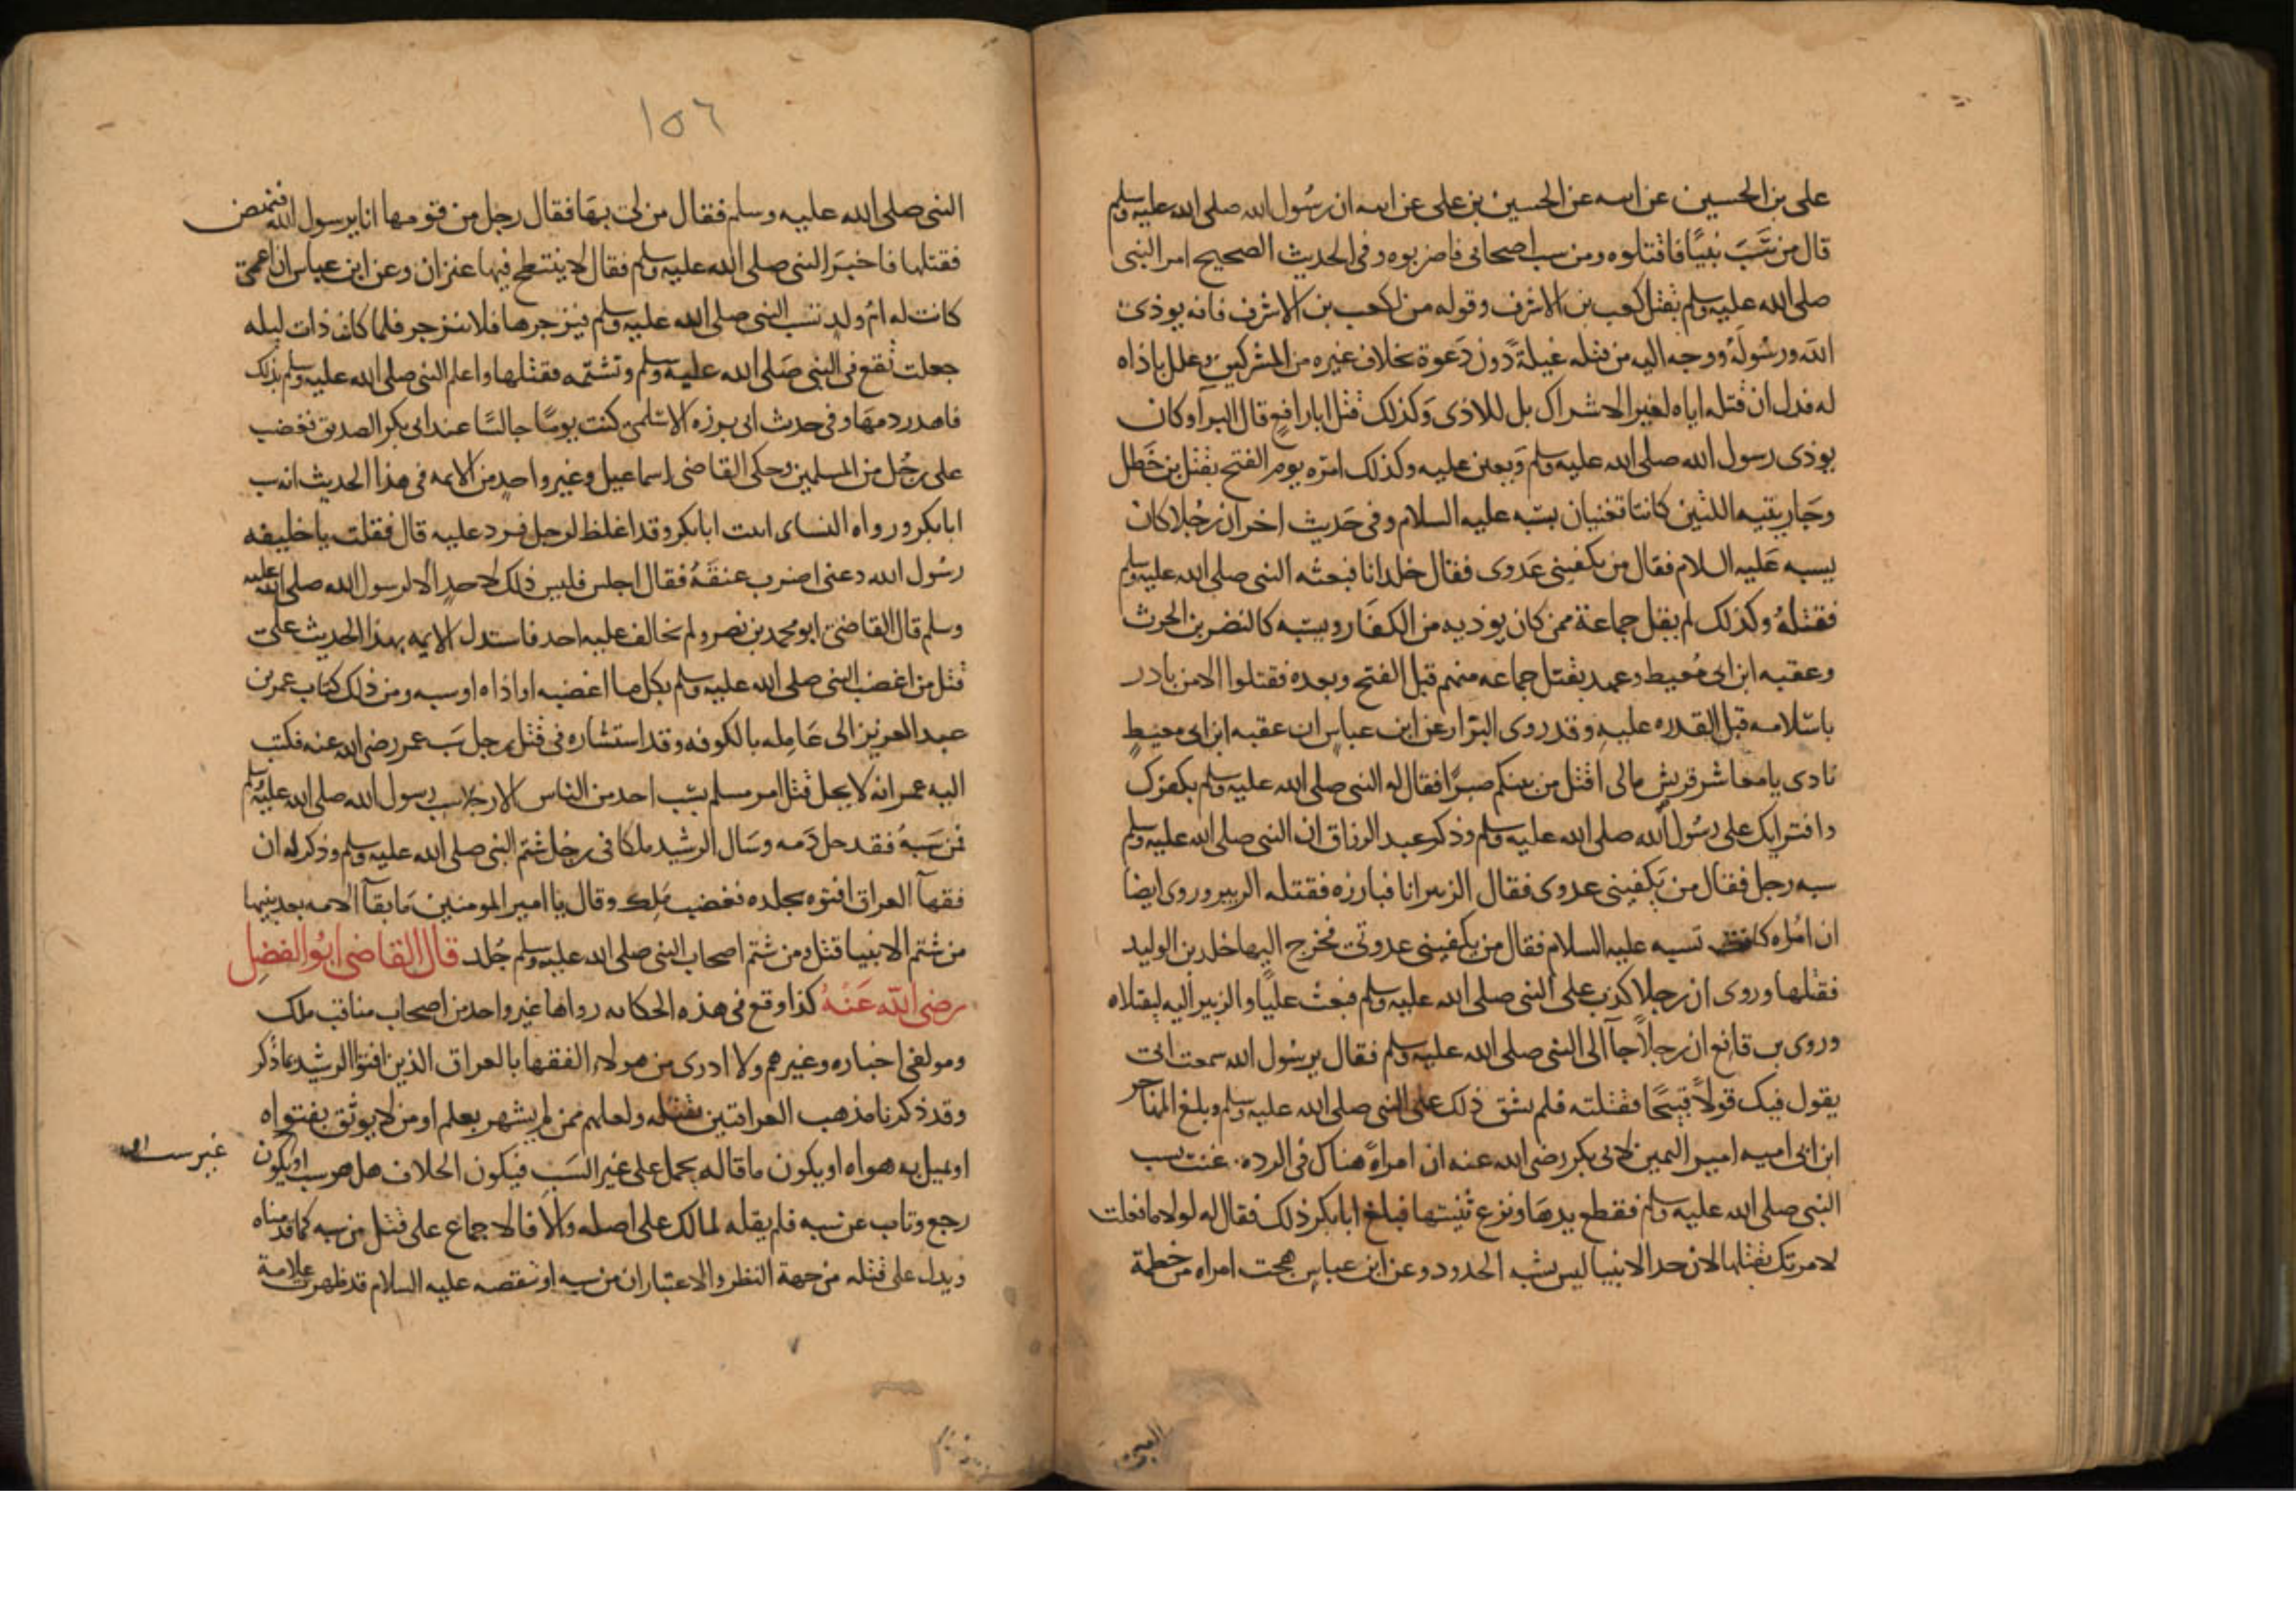 على بن الحسين عن ابيه عن الحسين بن على عن ابيه ان رسُول الله صلى الله عليه وسلم
قال من سَبَّ نبيًا فاقتلوه ومن سب اصحابى فاضربوه وفى الحديث الصحيح امر النبى
صلى الله عليه وسلم بقتل كعب بن الاشرف وقوله من لكعب بن الاشرف فانه يوذى
الله ورسُولَهُ ووجه اليه من قتله غيلةً دُونَ دَعوة بخلاف غيره من المشركين وعلل باذاه
له فدل ان قتله اياه لغير الاشراك بل للاذى وَكذلك قتل ابا رافعٍ قال البرآ وكان
يوذى رسول الله صلى الله عليه وسلم وَيعين عليه وكذلك امرُه يوم الفتح بقتل بن خَطَل
وجَاريتيه اللتين كانتا تغنيان بسَبّه عليه السلام وفى حَديث اخر ان رجُلا كان
يسبه عَليه السلام فقال من يكفينى عَدوى فقال خلد انا فبعثه النبى صلى الله عليه وسلم
فقتلهُ وكذلك لم يقل جماعة ممن كان يوذيه من الكفَار ويسَبّه كالنضر بن الحرث
وعقبه ابن ابى مُعيط وعهد بقتل جماعه منهم قبل الفتح وبعده فقتلوا الا من بادر
باسْلامه قبل القدره عليه وقد روى البزار عن ابن عباسٍ ان عقبه ابن ابى معيطٍ
نادى يا معاشر قريش مالى اقتل من بينكم صبرًا فقال له النبى صلى الله عليه وسلم بكفرك
وافترايك على رسُول الله صلى الله عليه وسلم وذكر عبد الرزاق ان النبى صلى الله عليه وسلم
سبه رجل فقال من يَكفينى عدوى فقال الزبير انا فبارزه فقتله الزبير وروى ايضا
ان امُراه كانت تسبه عليه السلام فقال من يكفينى عدوتى فخرج اليها خلد بن الوليد
فقتلها وروى ان رجلا كذب على النبى صلى الله عليه وسلم فبعث عليًا والزبير اليه ليقتلاه
وروى بن قانع ان رجلاً جآ الى النبى صلى الله عليه وسلم فقال يرسُول الله سمعت ابى
يقول فيك قولاً قبيحًا فقتلته فلم يشق ذلك على النبى صلى الله عليه وسلم وبلغ المهاجر
ابن ابى اميه امير اليمين لابى بكر رضى الله عنه ان امراهً هناك فى الرده غنت بسب
النبى صلى الله عليه وسلم فقطع يدهَا ونزع ثنيتها فبلغ ابا بكر ذلك فقال له لولا ما فعلت
لامرتك بقتلها لان حد الانبيا ليس يشبه الحدود وعن ابن عباسٍ هجت امراه من خطمة
١٥٦
النبى صلى الله عليه وسلم فقال من لى بهَا فقال رجل من قومها انا يرسول الله فنهض
فقتلها فاخبرَ النبى صلى الله عليه وسلم فقال لا ينتطح فيها عنزان وعن ابن عباس ان اعمى
كانت له امُ ولدٍ تسب النبى صلى الله عليه وسلم فيزجرها فلا تنزجر فلما كان ذات ليله
جعلت تقع فى النبى صَلى الله عليه وسلم وتشتمه فقتلها واعلم النبى صلى الله عليه وسلم بذلك
فاهدر دمهَا وفى حدث ابى برزه الاسْلمى كنت يومًا جالسًا عند ابى بكر الصديق فغضب
على رجُل من المسلمين وحكى القاضى اسماعيل وغير واحدٍ من الايمه فى هذا الحديث انه سب
ابا بكر ورواه النساى اتيت ابا بكر وقد اغلظ لرجل فرد عليه قال فقلت يا خليفه
رسُول الله دعنى اضرب عنقَهُ فقال اجلس فليس ذلك لاحدٍ الا لرسول الله صلى الله عليه
وسلم قال القاضى ابو محمد بن نصر ولم يخالف عليه احد فاستدل الايمه بهذا الحديث على
قتل من اغضب النبى صلى الله عليه وسلم بكل ما اغضبه او اذاه او سبه ومن ذلك كتاب عمر بن
عبد العزيز الى عَامِله بالكوفه وقد استشاره فى قتل رجل سَب عمر رضى الله عنه فكتب
اليه عمر انه لا يحل قتل امر مسلم بسَب احد من الناس الا رجلا سب رسول الله صلى الله عليه وسلم
فمن سَبهُ فقد حل دَمه وسَال الرشيد ملكا فى رجُل شتم النبى صلى الله عليه وسلم وذكر له ان
فقهآ العراق افتوه بجلده فغضب مَلك وقال يا امير المومنين مَا بقآ الامه بعد نبيها
من شتم الانبيا قتل ومن شتم اصحاب النبى صلى الله عليه وسلم جُلد قال القاضى ابُو الفضل
رضى الله عَنْهُ كذا وقع فى هذه الحكايه رواها غير واحد من اصحاب مناقب ملك
ومولفى اخباره وغيرهم ولا ادرى من هولاء الفقها بالعراق الذين افتوا الرشيد بما ذُكر
وقد ذكرنا مذهب العراقيين بقتله ولعلهم ممن لم يشهر بعلم او من لا يوثق بفتواه
او يميل به هواه او يكون ما قاله يحمل على غير السَب فيكون الخلاف هل هو سب او يكون
غير سب او
رجع وتاب عن سَبه فلم يقله لمالك على اصله والا فالاجماع على قتل من سبه كما قدمناه
ويدل على قتله من جهة النظر والاعتبار ان من سبه او تنقصه عليه السلام قد ظهرت علامة